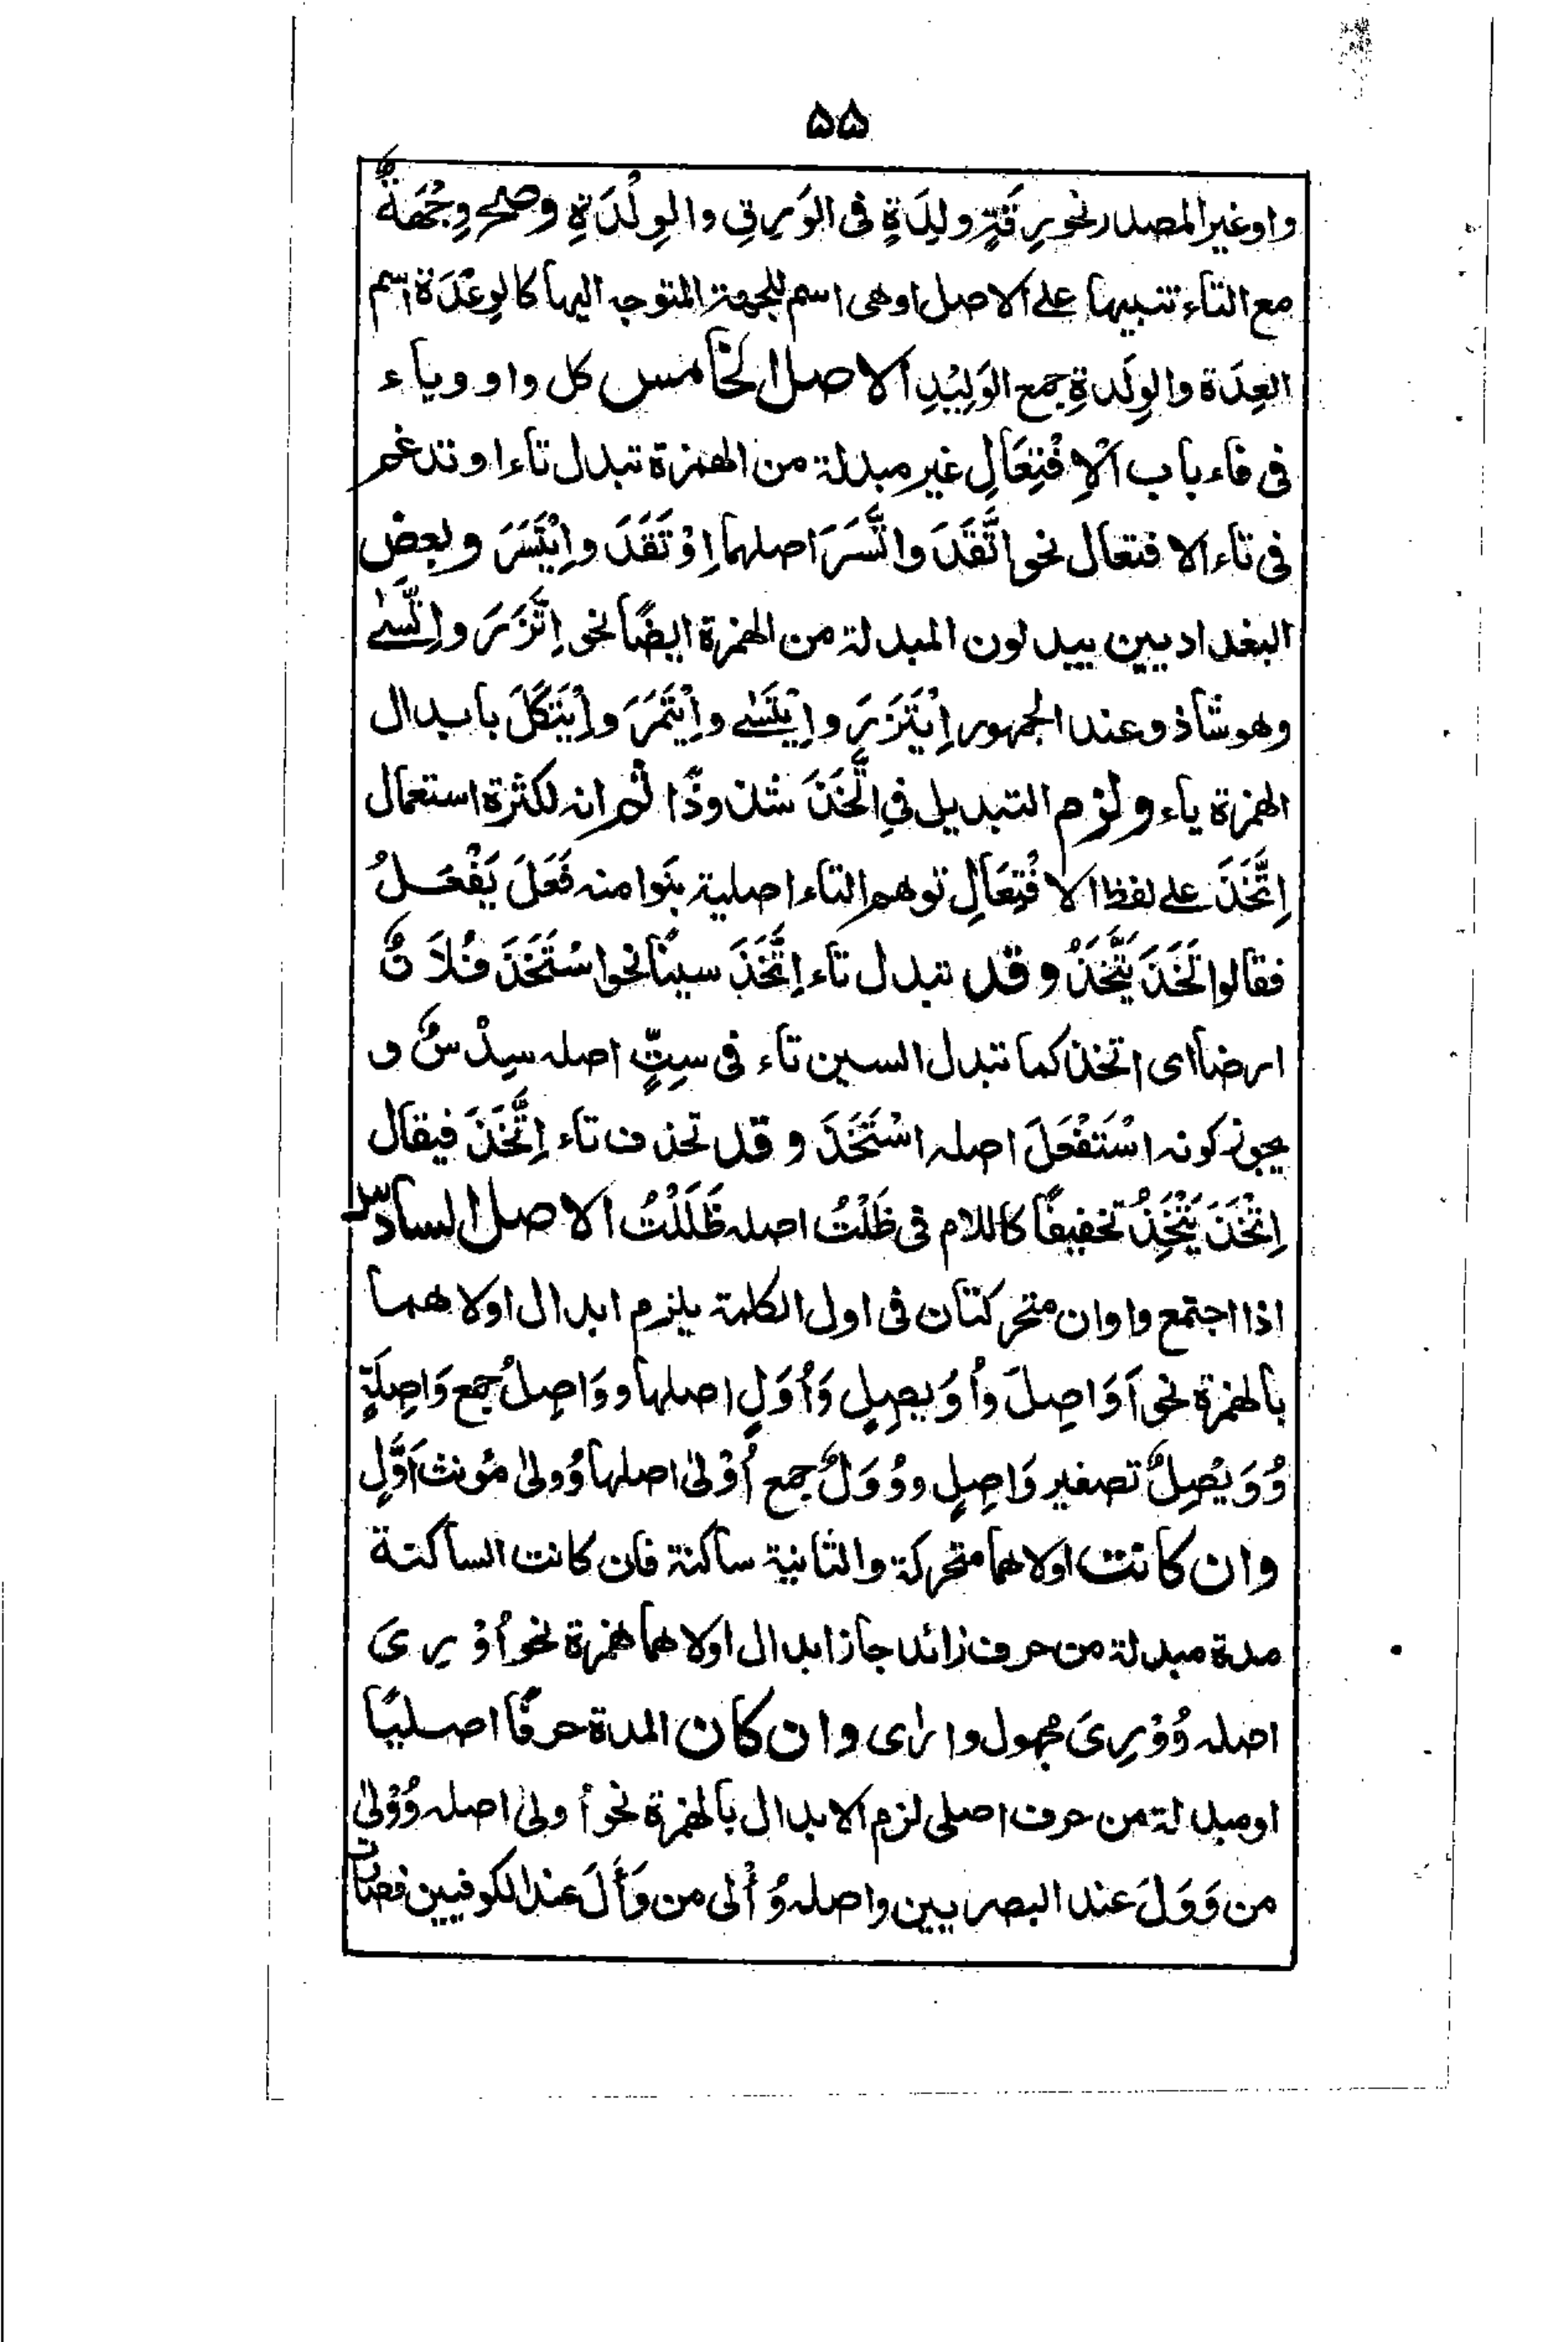 ۵۵
واو غير المصدر نحو رِقَةٍ ولِدَةٍ فى الوَرِقِ والوِلْدَةِ وصح وِجْهَةٌ
مع التاء تنبيها على الاصل او هى اسم للجهة المتوجه اليها كالوِعْدَة اسم
العِدَة والوِلَدةِ جمع الوَلِيْدِ الاصل الخامس كل واو وياء
فى فاء باب الْاِفْتِعَالِ غير مبدلة من الهمزة تبدل تاء او تدغم
فى تاء الافتعال نحو اتَّقَدَ واتَّسَرَ اصلهما اِوْتَقَدَ واِيْتَسَرَ وبعض
البغداديين يبدلون المبدلة من الهمزة ايضًا نحو اِتَّزَرَ واِتَّسٰے
وهو شاذ وعند الجمهور اِيْتَزَرَ واِيْتَسٰے واِيْتَمَرَ واِيْتَكَلَ بابدال
الهمزة ياء ولزم التبديل فِي اتَّخَذَ شذوذًا ثم انه لكثرة استعمال
اِتَّخَذَ على لفظ الافْتِعَالِ توهم التاء اصلية بنَوا منه فَعَلَ يَفْعَلُ
فقالوا تَخَذَ يَتَّخَذُ وقد تبدل تاء اِتَّخَذَ سينًا نحو اسْتَخَذَ فُلَانٌ
ارضا اى اتخذ كما تبدل السين تاء فى سِتٍّ اصله سِدْسٌ و
يجوز كونه اسْتَفْعَلَ اصله اسْتَتَخَذَ وقد تحذف تاء اِتَّخَذَ فيقال
اِتْخَذَ يَتْخِذُ تخفيفًا كاللام فى ظَلْتُ اصله ظَلَلْتُ الاصل السادس
اذا اجتمع واوان متحركتان فى اول الكلمة يلزم ابدال اولاهما
بالهمزة نحو اَوَاصِلَ واُوَيصِلٍ وَاُوَلٍ اصلها ووَاصِلُ جمع وَاصِلَةٍ
وُوَيْصِلٌ تصغير وَاصِلٍ ووُوَلٌ جمع اُوْلىٰ اصلها وُولىٰ مؤنث اَوَّلٍ
وان كانت اولاهما متحركة والثانية ساكنة فان كانت الساكنة
مدة مبدلة من حرف زائد جاز ابدال اولاهما همزة نحو اُوْرِىَ
اصله وُوْرِىَ مجهول وارى وان كان المدة حرفًا اصليًا
او مبدلة من حرف اصلى لزم الابدال بالهمزة نحو أولىٰ اصله وُوْلىٰ
من وَوَلَ عند البصريين واصله وُأْلى من وَأَلَ عند الكوفيين فصارت